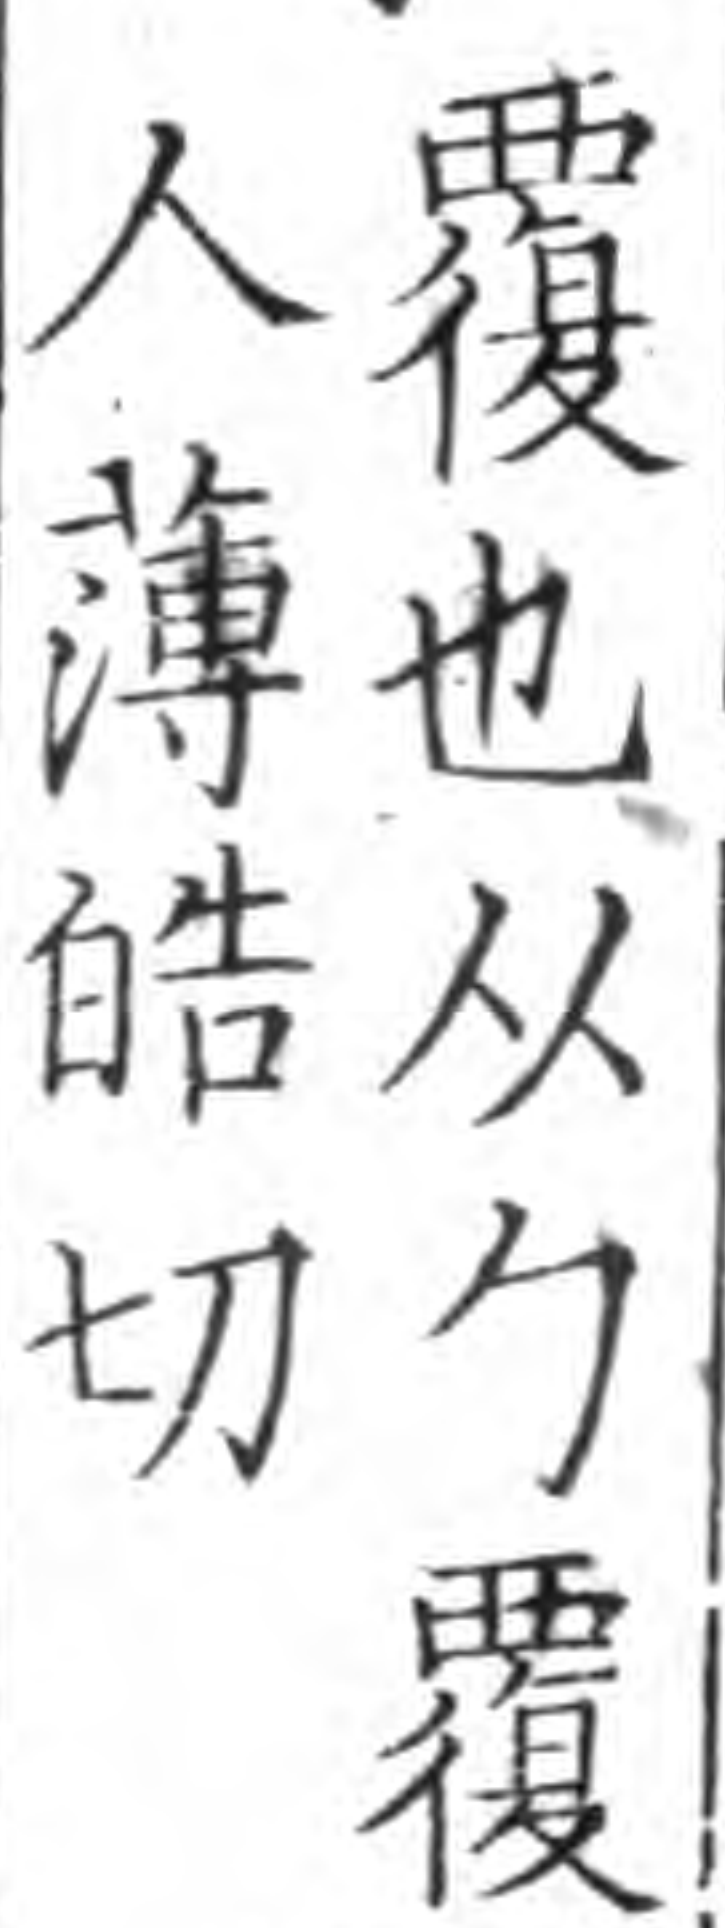 覆也从勹覆
人薄皓切